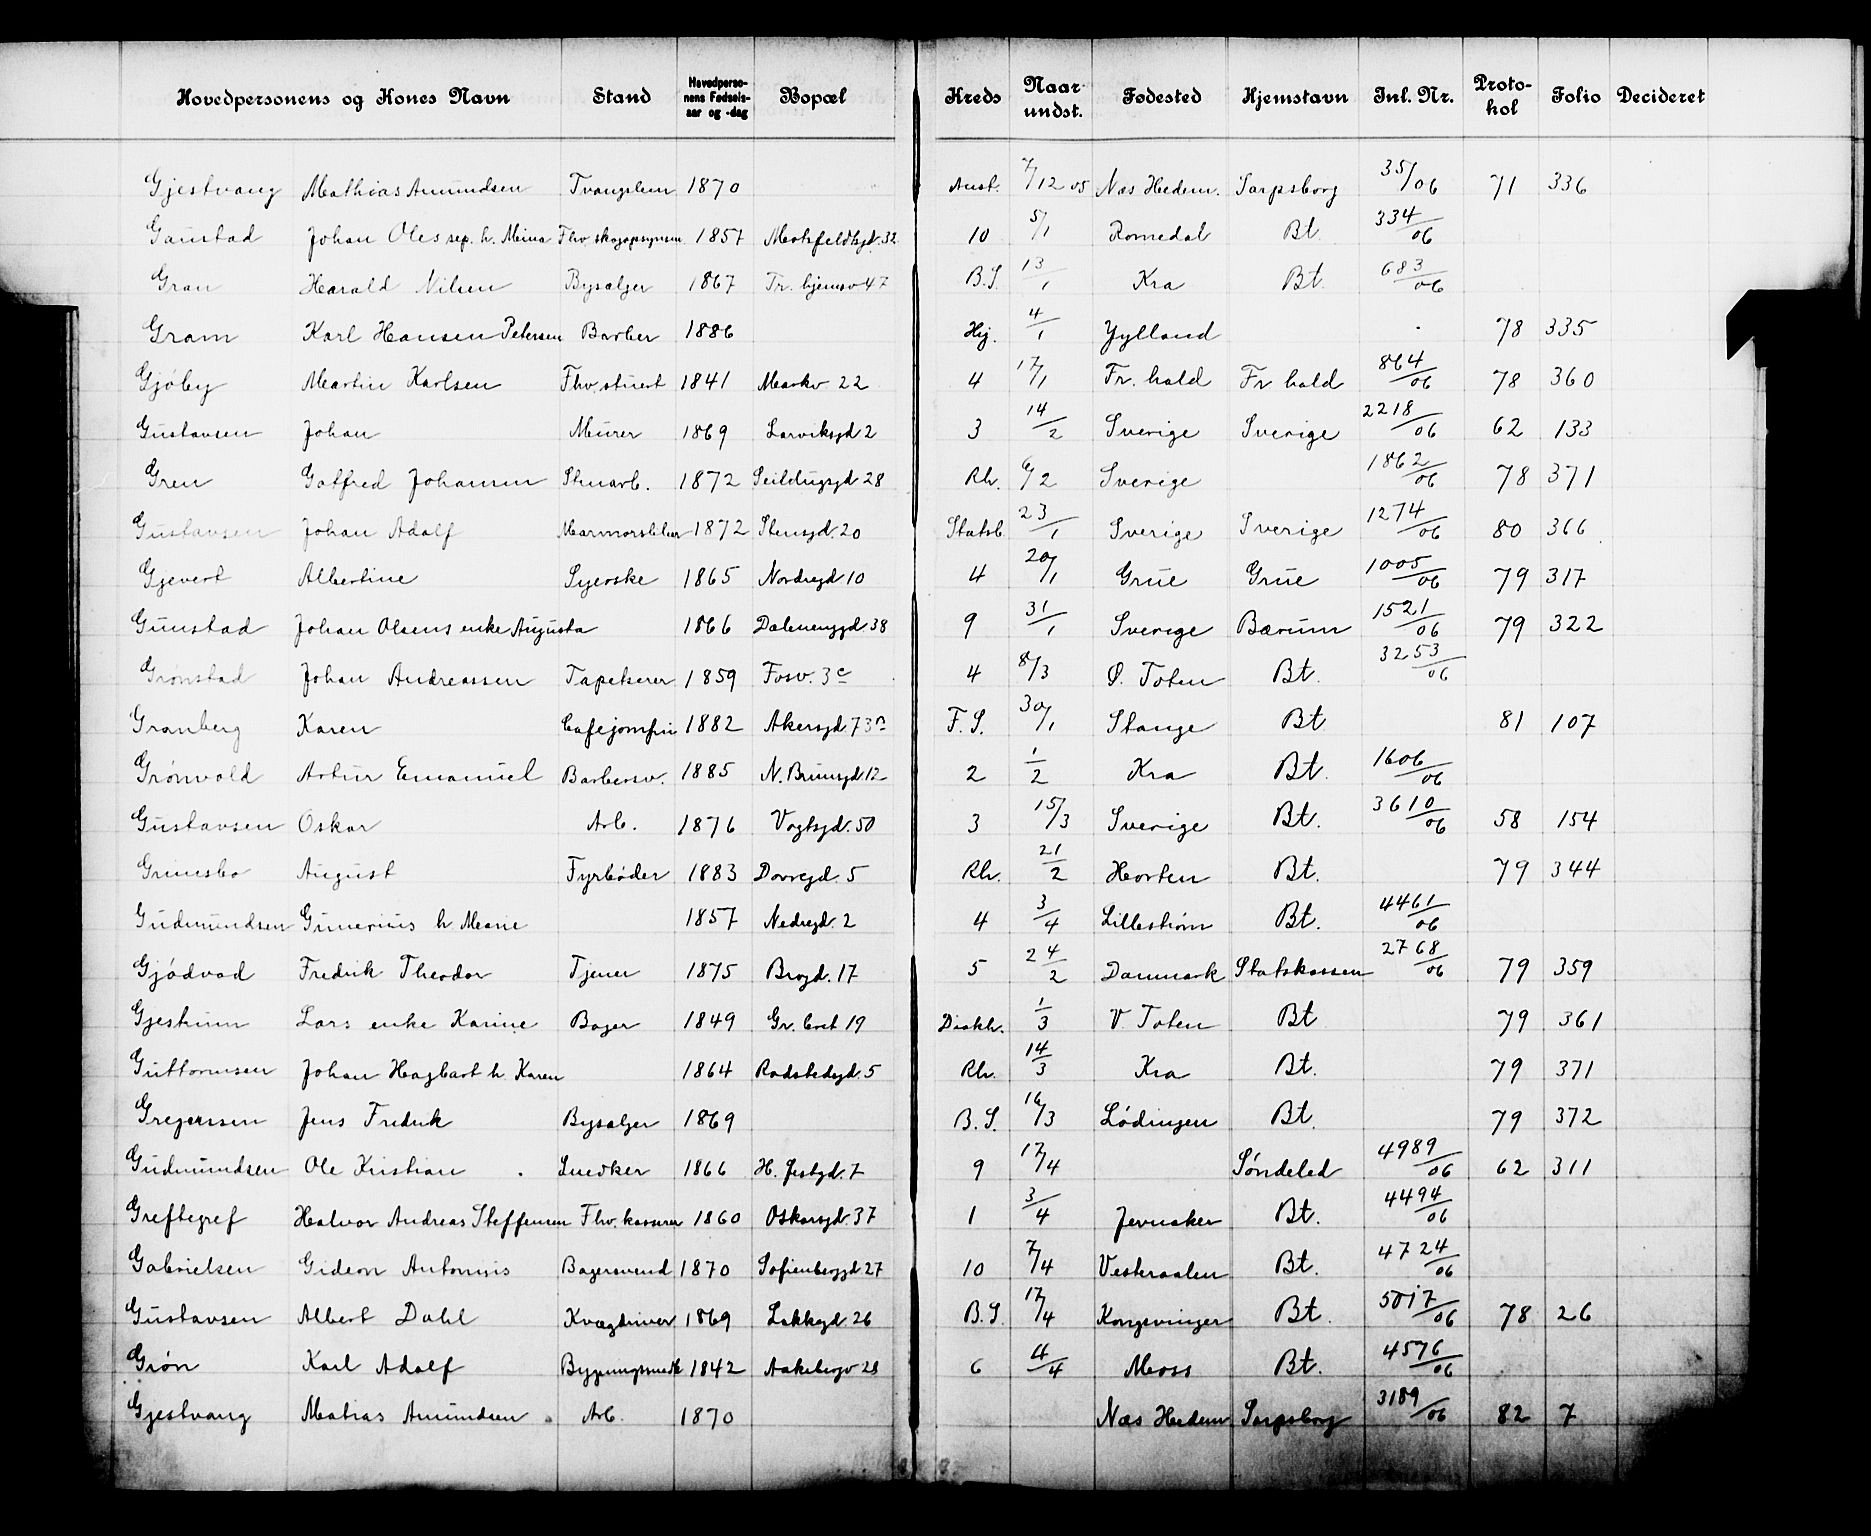 Hovedpersonens og Kones Navn Stand Hovedpersonens Fødselsaar og -dag Bopæl Kreds Naar undst. Fødested Hjemstavn Inl. Nr. Protokol Folio Decideret
Gjestvang Mathias Amundsen Tvangslem 1870 Anst. 7/12 05 Næs Hedem. Sarpsborg 35/06 71 336
Gaustad Johan Oles sep. h. Mina Fhv. skogopsynsm 1857 10 5/1 Romedal Bt. 334/06
Gran Harald Nilsen Bysælger 1867 Tr. hjemsv 47 B.S. 13/1 Kra Bt. 683/06
Gram Karl Hansen Petersen Barber 1886 Hj. 4/1 Jylland 78 335
Gjøby Martin Karlsen Fhv. stuert 1841 Markv 22 4 17/1 Fr. hald Fr hald 864/06 78 360
Gustavsen Johan Murer 1869 Larviksgd 2 3 14/2 Sverige Sverige 2218/06 62 133
Gren Gotfred Johansen Stenarb. 1872 Seildugsgd 28 Rh. 6/2 Sverige 1862/06 78 371
Gustavsen Johan Adolf Marmorsliber 1872 Stensgd. 20 Statsb. 23/1 Sverige Sverige 1274/06 80 366
Gjevert Albertine Syerske 1865 Nordregd 10 4 20/1 Grue Grue 1005/06 79 317
Gunstad Johan Olsens enke Augusta 1866 Dælenenggd 38 9 31/1 Sverige Bærum 1521/06 79 322
Grønstad Johan Andreassen Tapetserer 1859 Fosv. 3c 4 8/3 Ø. Toten Bt. 3253/06
Granberg Karen Cafejomfru 1882 Akersgd. 73 F.S. 30/1 Stange Bt. 81 107
Grønvold Artur Emanuel Barbersv. 1885 N. Brunsgd. 12 2 1/2 Kra Bt. 1606/06
Gustavsen Oskar Arb. 1876 Vogtsgd. 50 3 15/3 Sverige Bt. 3610/06 58 154
Grimsbo August Fyrbøder 1883 Dovregd. 5 Rh. 21/2 Horten Bt. 79 344
Gudmundsen Gunerius h Marie 1857 Nedregd. 2 4 3/4 Lillestrøm Bt. 4461/06
Gjødvad Fredrik Theodor Tjener 1875 Brogd. 17 5 24/2 Danmark Statskassen 2768/06 79 359
Gjestrum Lars enke Karine Bager 1849 Gr. 19 Diakh. 1/3 V. Toten Bt 79 361
Guttormsen Johan Hagbart h. Karen 1864 Rh. 14/3 Kra Bt. 79 371
Gregersen Jens Fredrik Bysælger 1869 B.S. 16/3 Lødingen Bt. 79 372
Gudmundsen Ole Kristian Snedker 1866 9 17/4 Søndeled 4989/06 62 311
Greftegref Halvor Andreas Steffensen Fhv. kasserer 1860 Oskarsgd. 37 1 3/4 Jevnaker Bt. 4494/06
Gabrielsen Gideon Antonius Bagersvend 1870 Sofienberggd 27 10 7/4 Vesteraalen Bt. 4724/06
Gustavsen Albert Dahl Kvægdriver 1869 Lakkegd. 26 B.S. 17/4 Kongsvinger Bt. 5017/06 78 26
Grøn Karl Adolf Bygningssnedk 1842 Aakebergv 28 6 4/4 Moss Bt. 4576/06
Gjestvang Matias Amundsen Arb. 1870 Næs Hedem Sarpsborg 3189/06 82 7